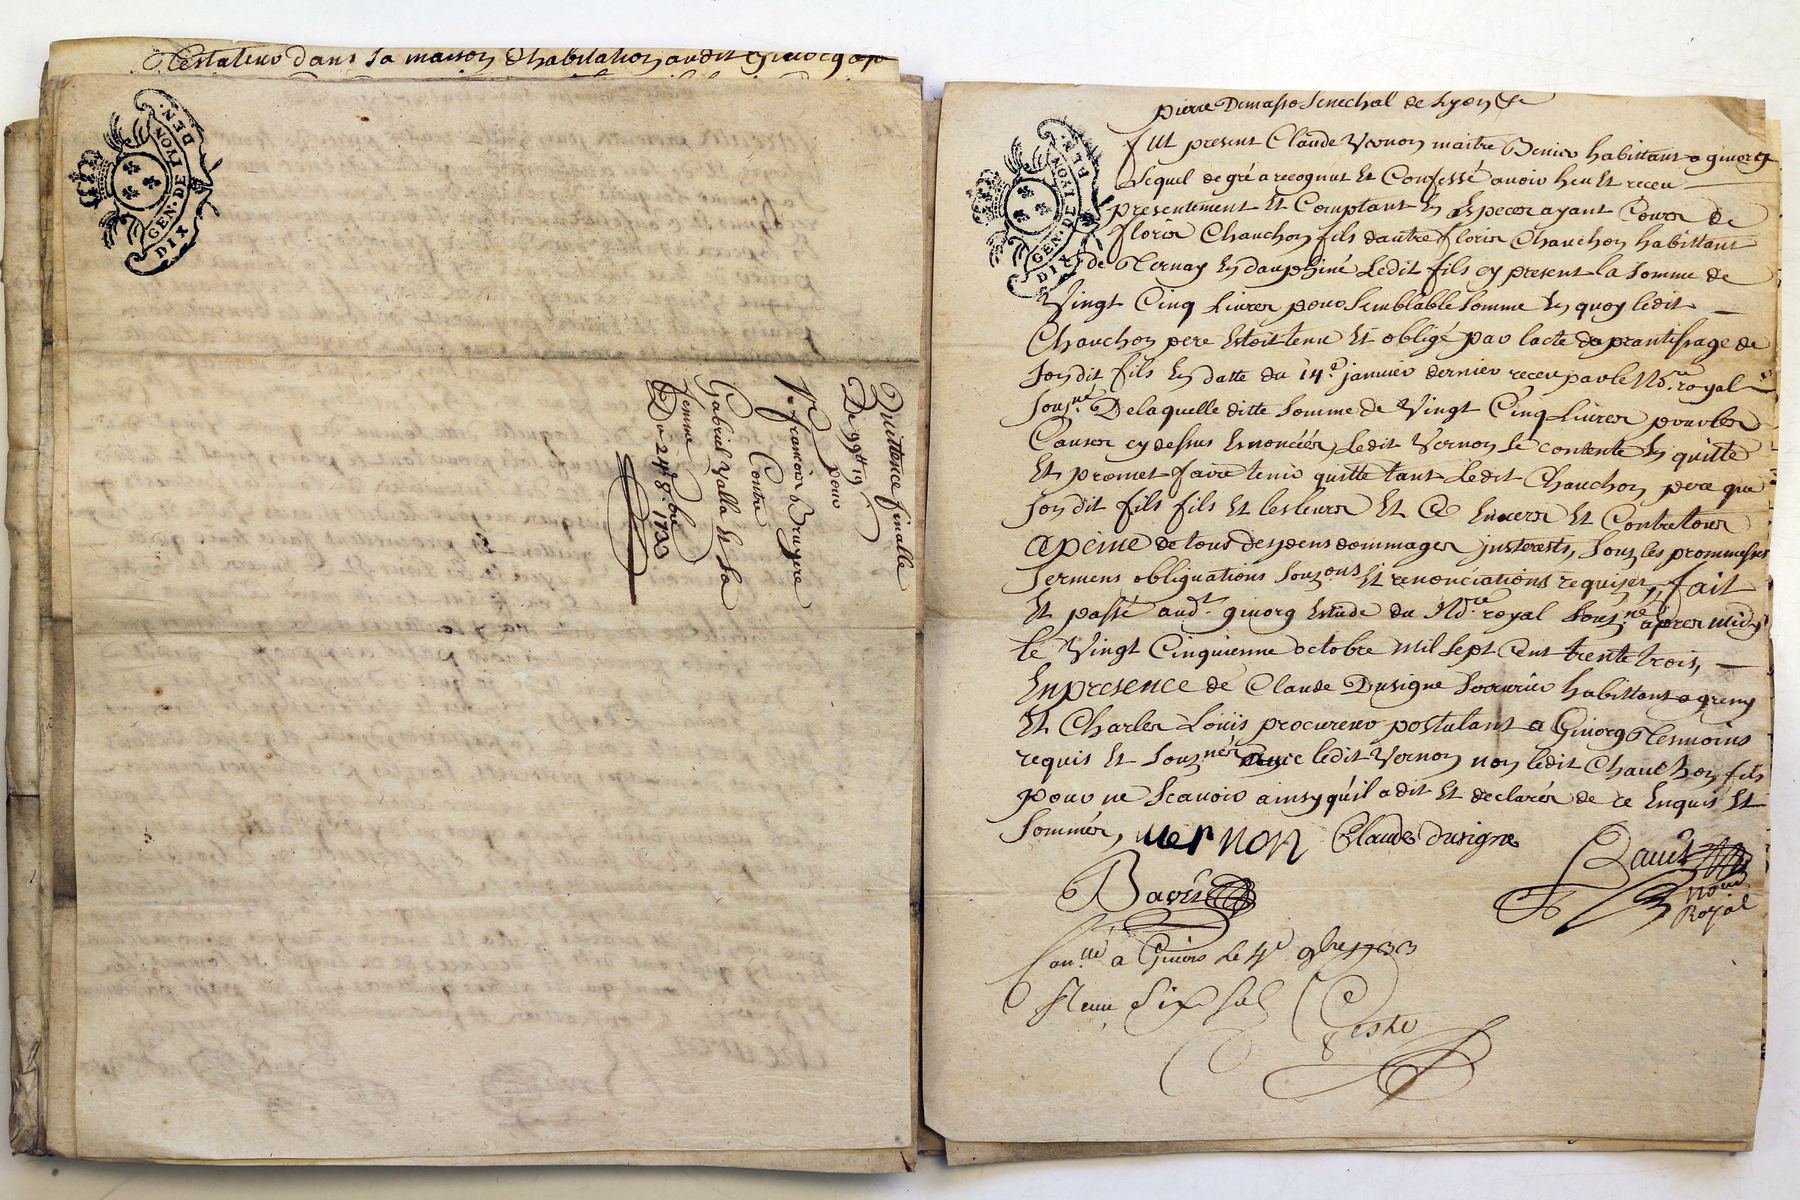 testateur dans sa maison d'habitation audit Givorg ap
GEN·DE·LYON
DIX DEN·
Quittence finalle
De 99tt 19s
pour
Sr françois Bruyere
Contre
Gabriel Valla Et Sa
femme
Du 24e 8bre 1733
pierre Demasso Senechal de Lyon &c
Fut present Claude Vernon maitre Venier habittant a givorg
Lequel de gré a recognut Et Confessé avoir heu Et receu
presentement Et Comptant En Especes ayant Cours de
floris Chauchon fils dautre floris Chauchon habittant
de Ternay En dauphiné Ledit fils cy present la Somme de
Vingt Cinq Livres pour Semblable Somme En quoy ledit
Chauchon pere Estoit tenu Et obligé par lacte daprantissage de
Son dit fils En datte du 14e janvier dernier receu par le No.re royal
Souz.né Delaquelle ditte Somme de Vingt Cinq Livres pour les
Causes cy dessus Enoncées, Ledit Vernon Se contente En quitte
Et promet faire tenir quitte tant Ledit Chauchon pere que
Son dit fils fils Et les leurs Et Ce Envers Et Contre tous
a peine de tous despens dommages jnterests, Souz les prommesses
Sermens obliguations Souz.ons Et renonciations requises, fait
Et passé aud.t givorg Estude du No.re royal Souz.né apres midy
le Vingt Cinquienne octobre Mil Sept Cent trente trois,
En presence de Claude Dusigne Serrurier habittant a greny
Et Charles Loüis procureur postulant a Givorg Tesmoins
requis Et Souz.nés avec ledit Vernon non ledit Chauchon fils
pour ne Scavoir ainsy qu'il a dit Et declarés de ce Enquis Et
Sommés, vernon Claude dusigne
No.re
Royal
Con.llé a Givors le 4e 9bre 1733
Reçu Six Sols
GEN·DE·LYON
DIX DEN·